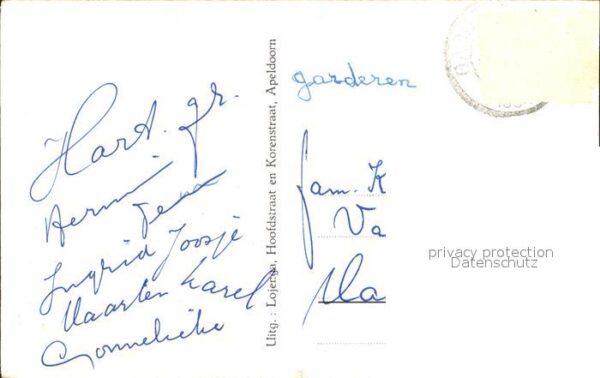 Hart. gr.
Hermi
Ingrid Joosje
Maarten Karel
Gonnelieke
Uitg.: Lojenga, Hoofdstraat en Korenstraat, Apeldoorn
garderen
fam. K
Va
Ma
privacy protection
Datenschutz